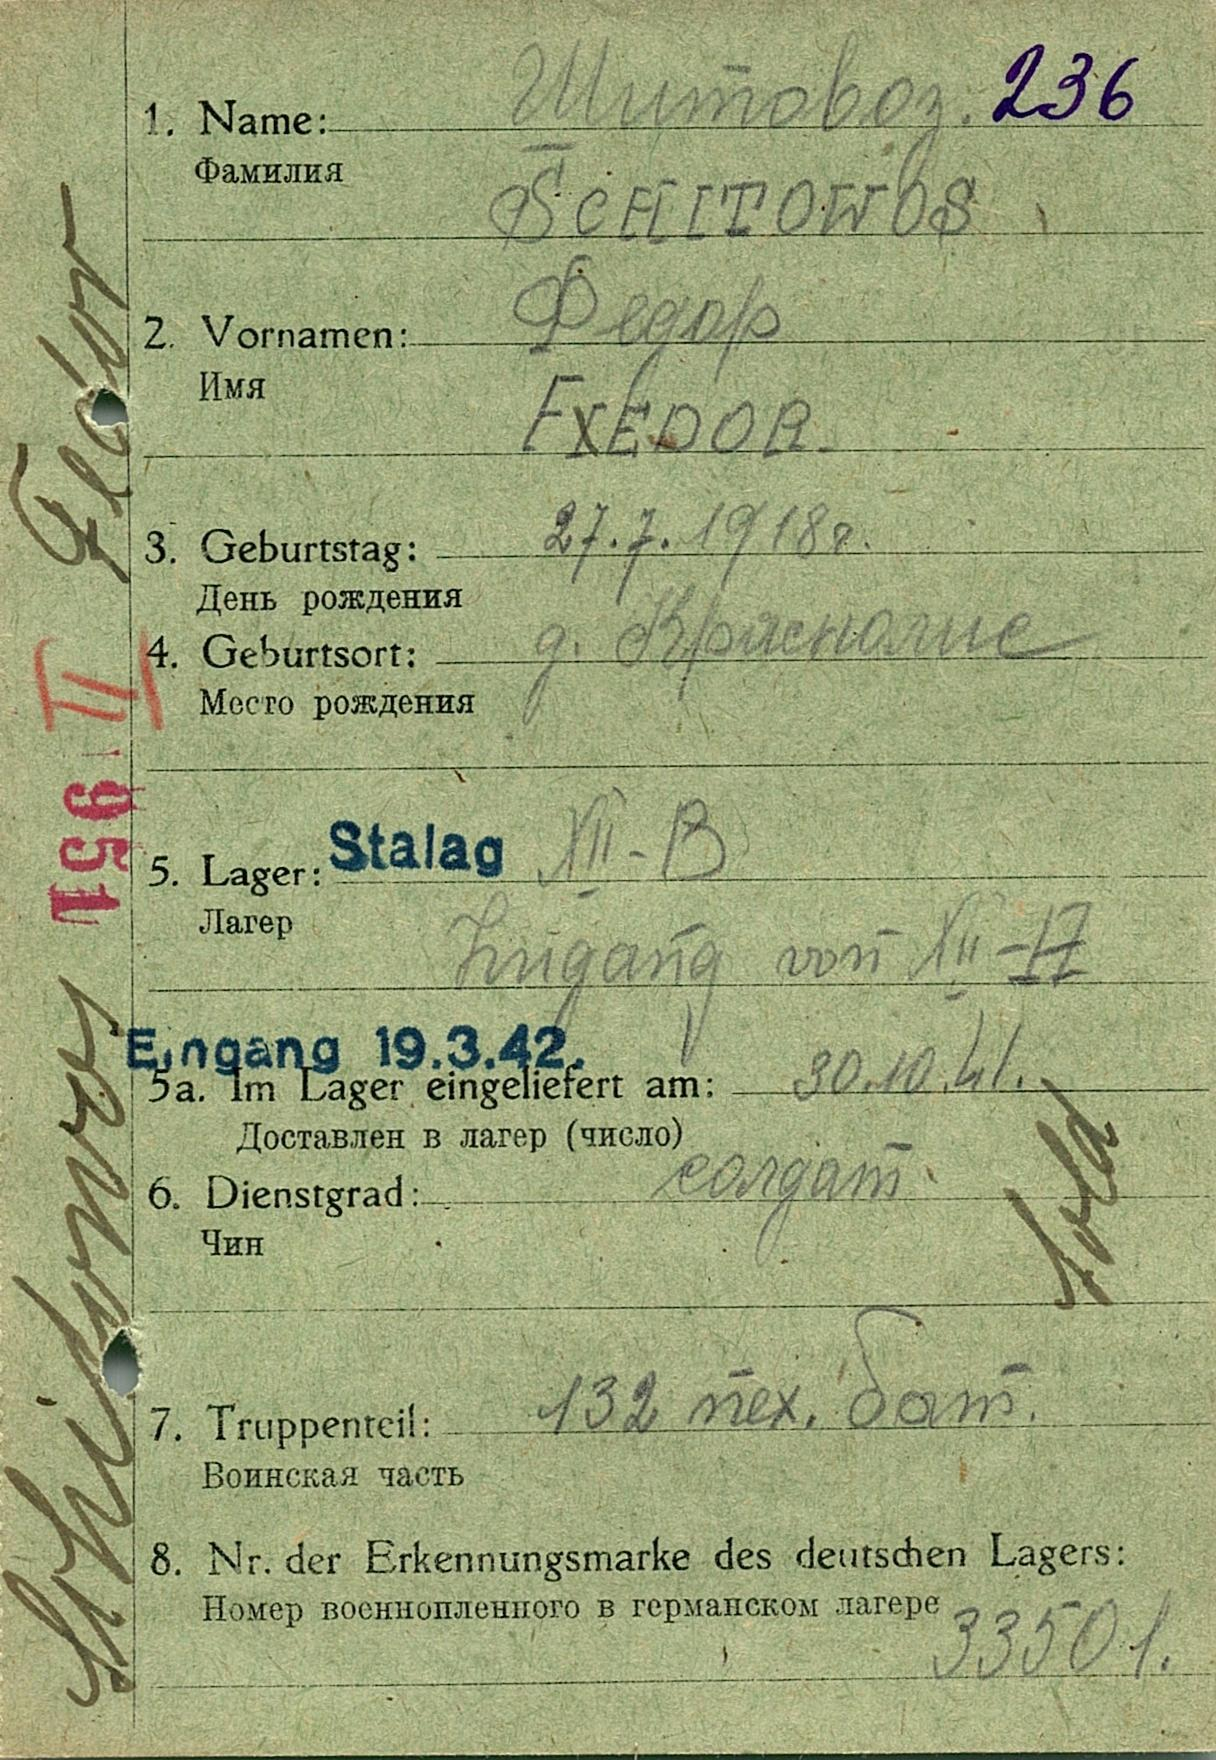 236
Шитовоз.
1. Name:
Фамилия
SCHITOWOS
Федор
2. Vornamen:
Имя
FXEDOR.
3. Geburtstag: 27.7.1918г.
День рождения
4. Geburtsort: д.
Место рождения
5. Lager: Stalag XII-B
Лагер
Zugang von XII-A
Eingang 19.3.42.
5a. Im Lager eingeliefert am: 30.10.41.
Доставлен в лагер (число)
6. Dienstgrad: солдат.
Чин
Sold
7. Truppenteil: 132 пех. бат.
Воинская часть
8. Nr. der Erkennungsmarke des deutschen Lagers:
Номер военнопленного в германском лагере
33501.
Schidowos 156 II Fledor